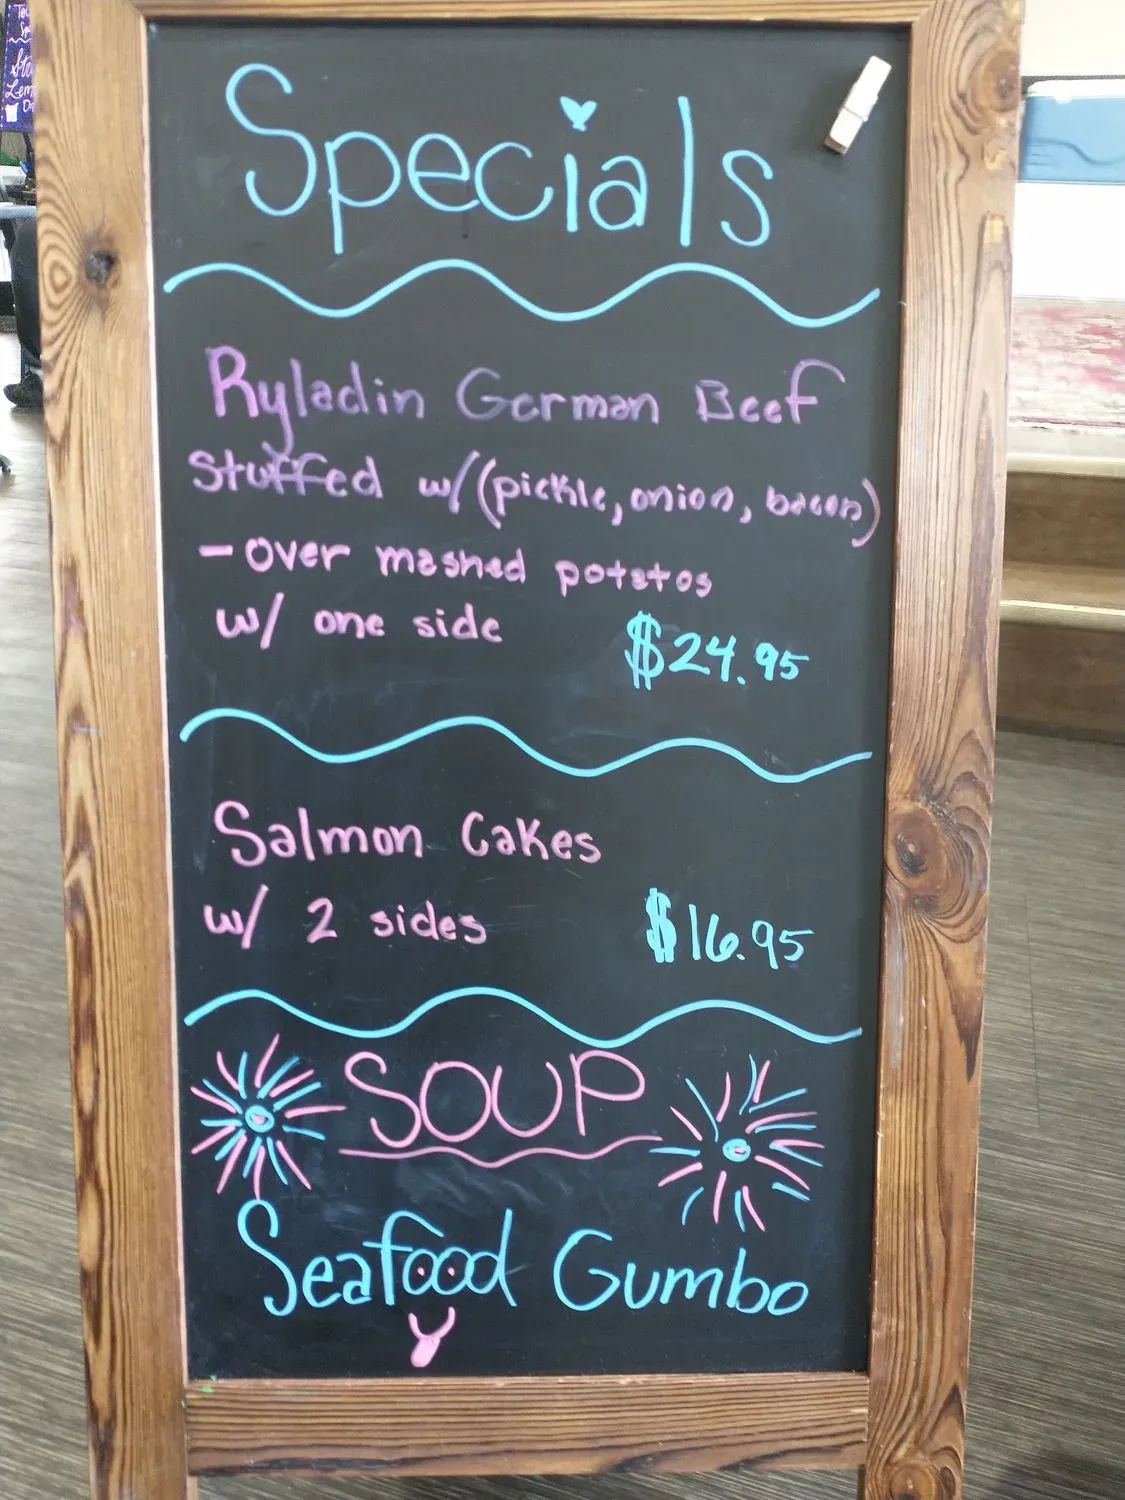 Specials
Ryladin German Beef
Stuffed w/(pickle, onion, bacon)
- over mashed potatos
w/ one side $24.95
Salmon Cakes
w/ 2 sides $16.95
SOUP
Seafood Gumbo